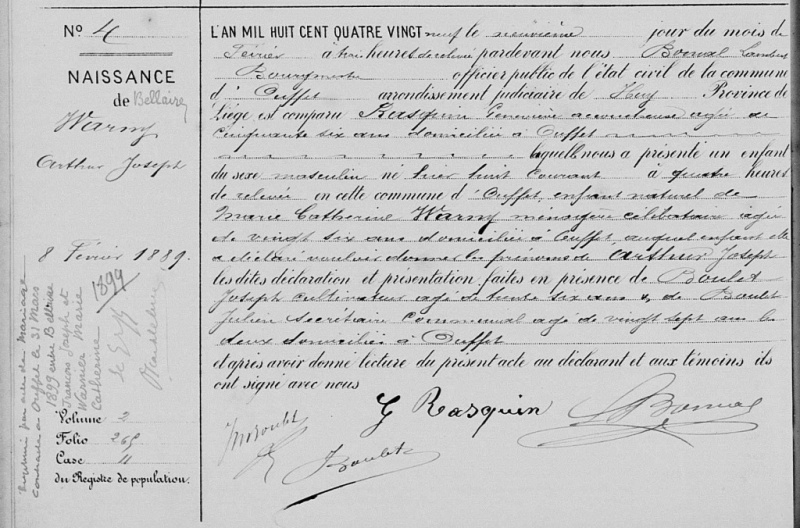 No 4
NAISSANCE
de Bellaire
Warny
Arthur Joseph
8 Février 1889.
mariage
contracté à Ouffet le 31 Mars
1899 entre Bellaire
François Joseph et
Warnier Marie
Catherine
1899
le Greff
Volume 2
Folio 269
Case 11
du Registre de population.
L'AN MIL HUIT CENT QUATRE VINGT neuf le neuvième jour du mois de
Février à trois heures de relevé pardevant nous Bonval Lambert
Bourgmestre officier public de l'état civil de la commune
d'Ouffet arrondissement judiciaire de Huy Province de
Liége est comparu Rasquin Geneviève accoucheuse agée de
cinquante six ans domiciliée à Ouffet
laquelle nous a présenté un enfant
du sexe masculin né hier huit courant à quatre heures
de relevée en cette commune d'Ouffet, enfant naturel de
Marie Catherine Warny ménagère célibataire agée
de vingt six ans domiciliée à Ouffet, auquel enfant elle
a déclaré vouloir donner les prénoms de Arthur Joseph
les dites déclaration et présentation faites en présence de Boulet
Joseph cultivateur agé de trente six ans & de Boulet
Julien Secrétaire communal agé de vingt sept ans les
deux domiciliés à Ouffet
et après avoir donné lecture du présent acte au déclarant et aux témoins ils
ont signé avec nous
G Rasquin
Bonval
J Boulet
J Boulet